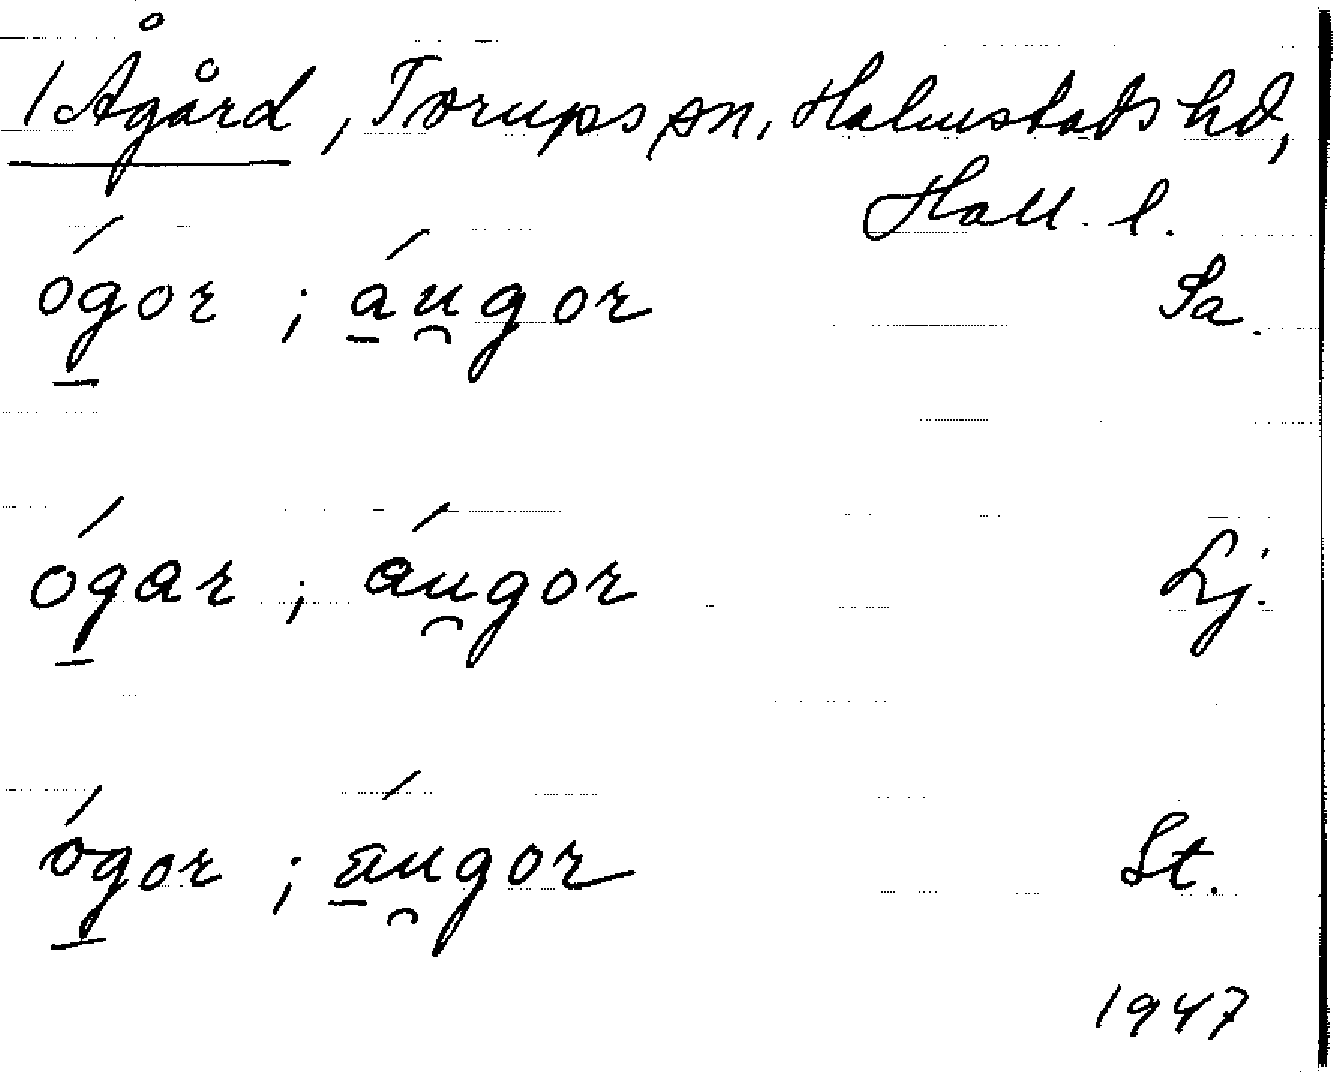 1 Ågård, Torups sn, Halmstads hd,
Hall. l.
ógor ; áu̯gor Sa.
ógar ; áu̯gor Lj.
ógor ; áu̯gor St.
1947